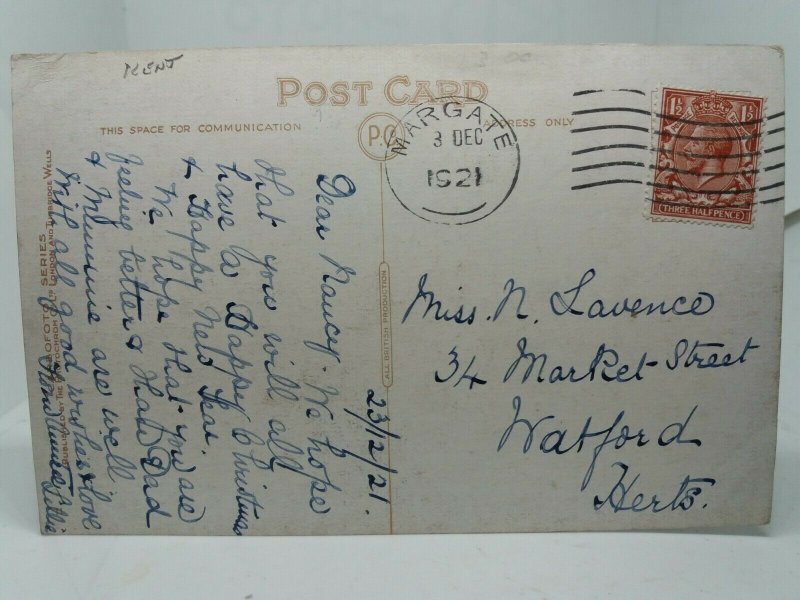 KENT
POST CARD
THIS SPACE FOR COMMUNICATION
P.C.
ADDRESS ONLY
MARGATE
3 DEC
1921
1½ 1½
THREE HALFPENCE
ALL BRITISH PRODUCTION
SERIES
PUBLISHED BY THE PHOTOCHROM CO. LTD LONDON AND TUNBRIDGE WELLS
23/12/21.
Dear Nancy. We hope
that you will all
have a Happy Christmas
& Happy New Year.
We hope that you are
feeling better & that Dad
& Minnie are well
With all good wishes & love
from
Lillie
Miss. N. Lavence
34 Market Street
Watford
Herts.